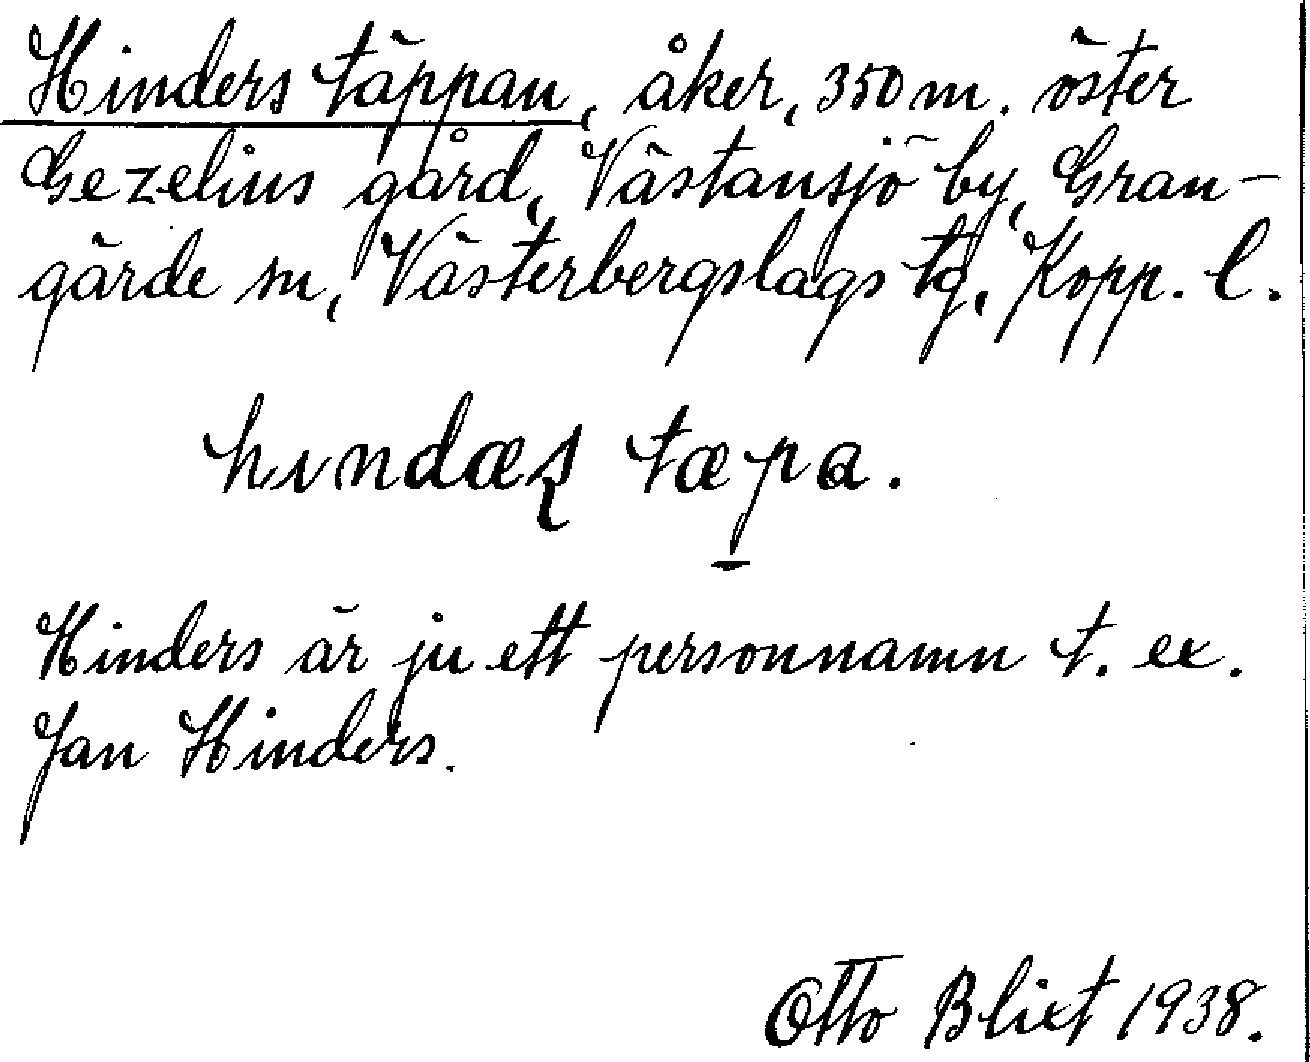 Hinders täppan, åker, 350 m. öster
Gezelius gård, Västansjö by, Gran-
gärde sn, Västerbergslags tg, Kopp. l.
hındæʂ tæp̱a.
Hinders är ju ett personnamn t. ex.
Jan Hinders.
Otto Blixt 1938.